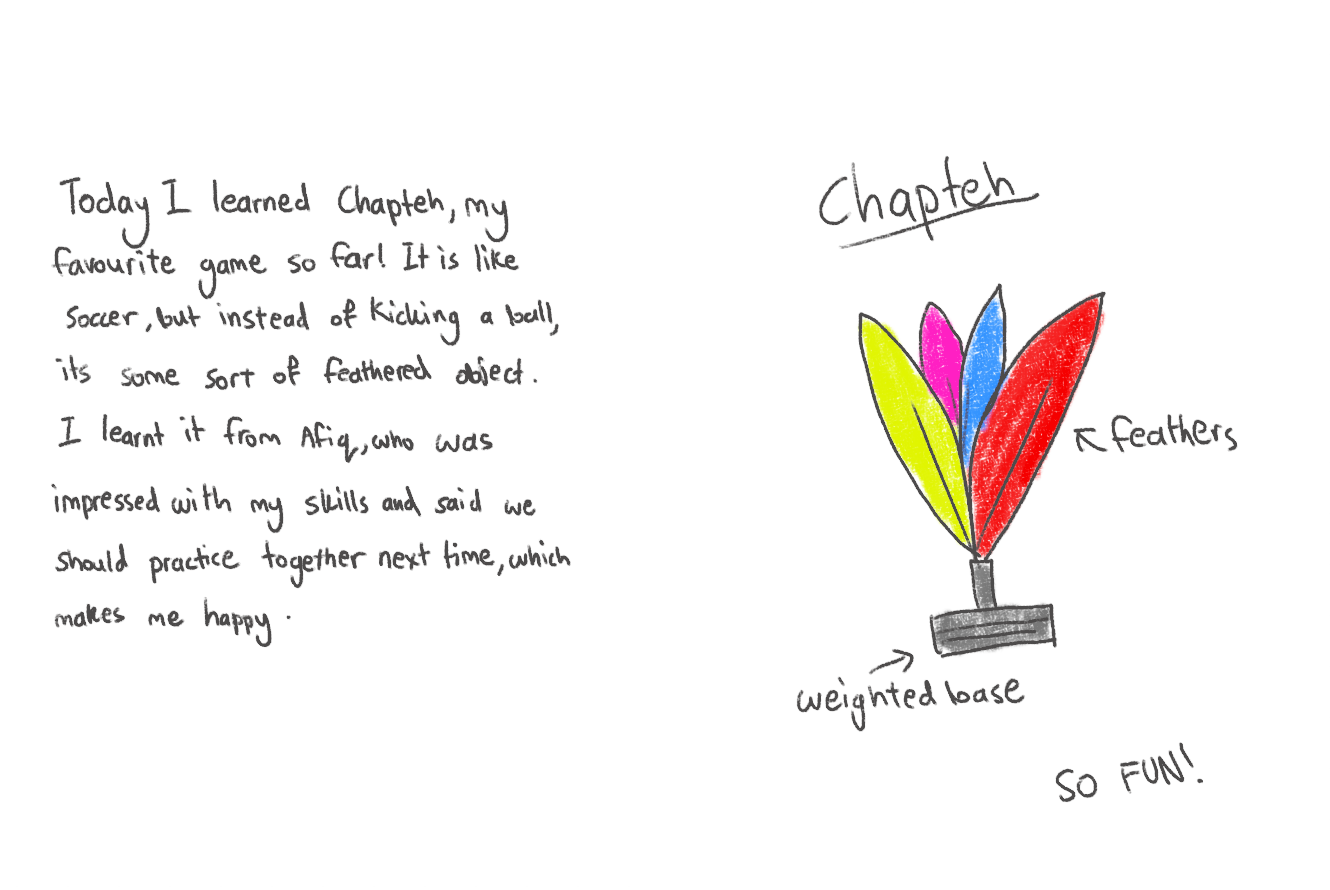 Today I learned Chapteh, my
favourite game so far! It is like
soccer, but instead of kicking a ball,
its some sort of feathered object.
I learnt it from Afiq, who was
impressed with my skills and said we
should practice together next time, which
makes me happy.
Chapteh
feathers
weighted base
SO FUN!